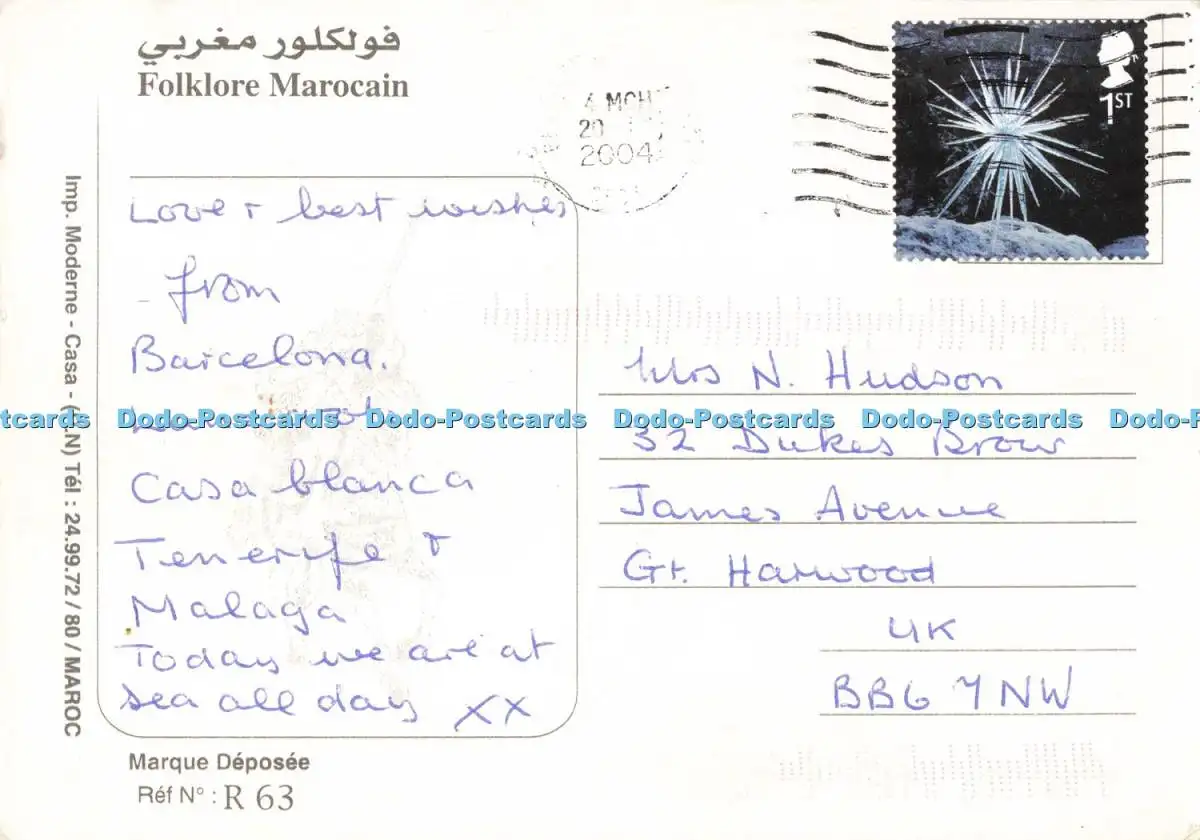 فولكلور مغربي
Folklore Marocain
4 MCH
20
2004
1ST
Imp. Moderne - Casa - Tél : 24.99.72 / 80 / MAROC
Love + best wishes
from
Barcelona.
Casablanca
Tenerife +
Malaga
Today we are at
sea all day XX
Mrs N. Hudson
32 Dukes Brow
James Avenue
Gt. Harwood
UK
BB6 7NW
Dodo-Postcards Dodo-Postcards Dodo-Postcards Dodo-Postcards
Marque Déposée
Réf N° : R 63